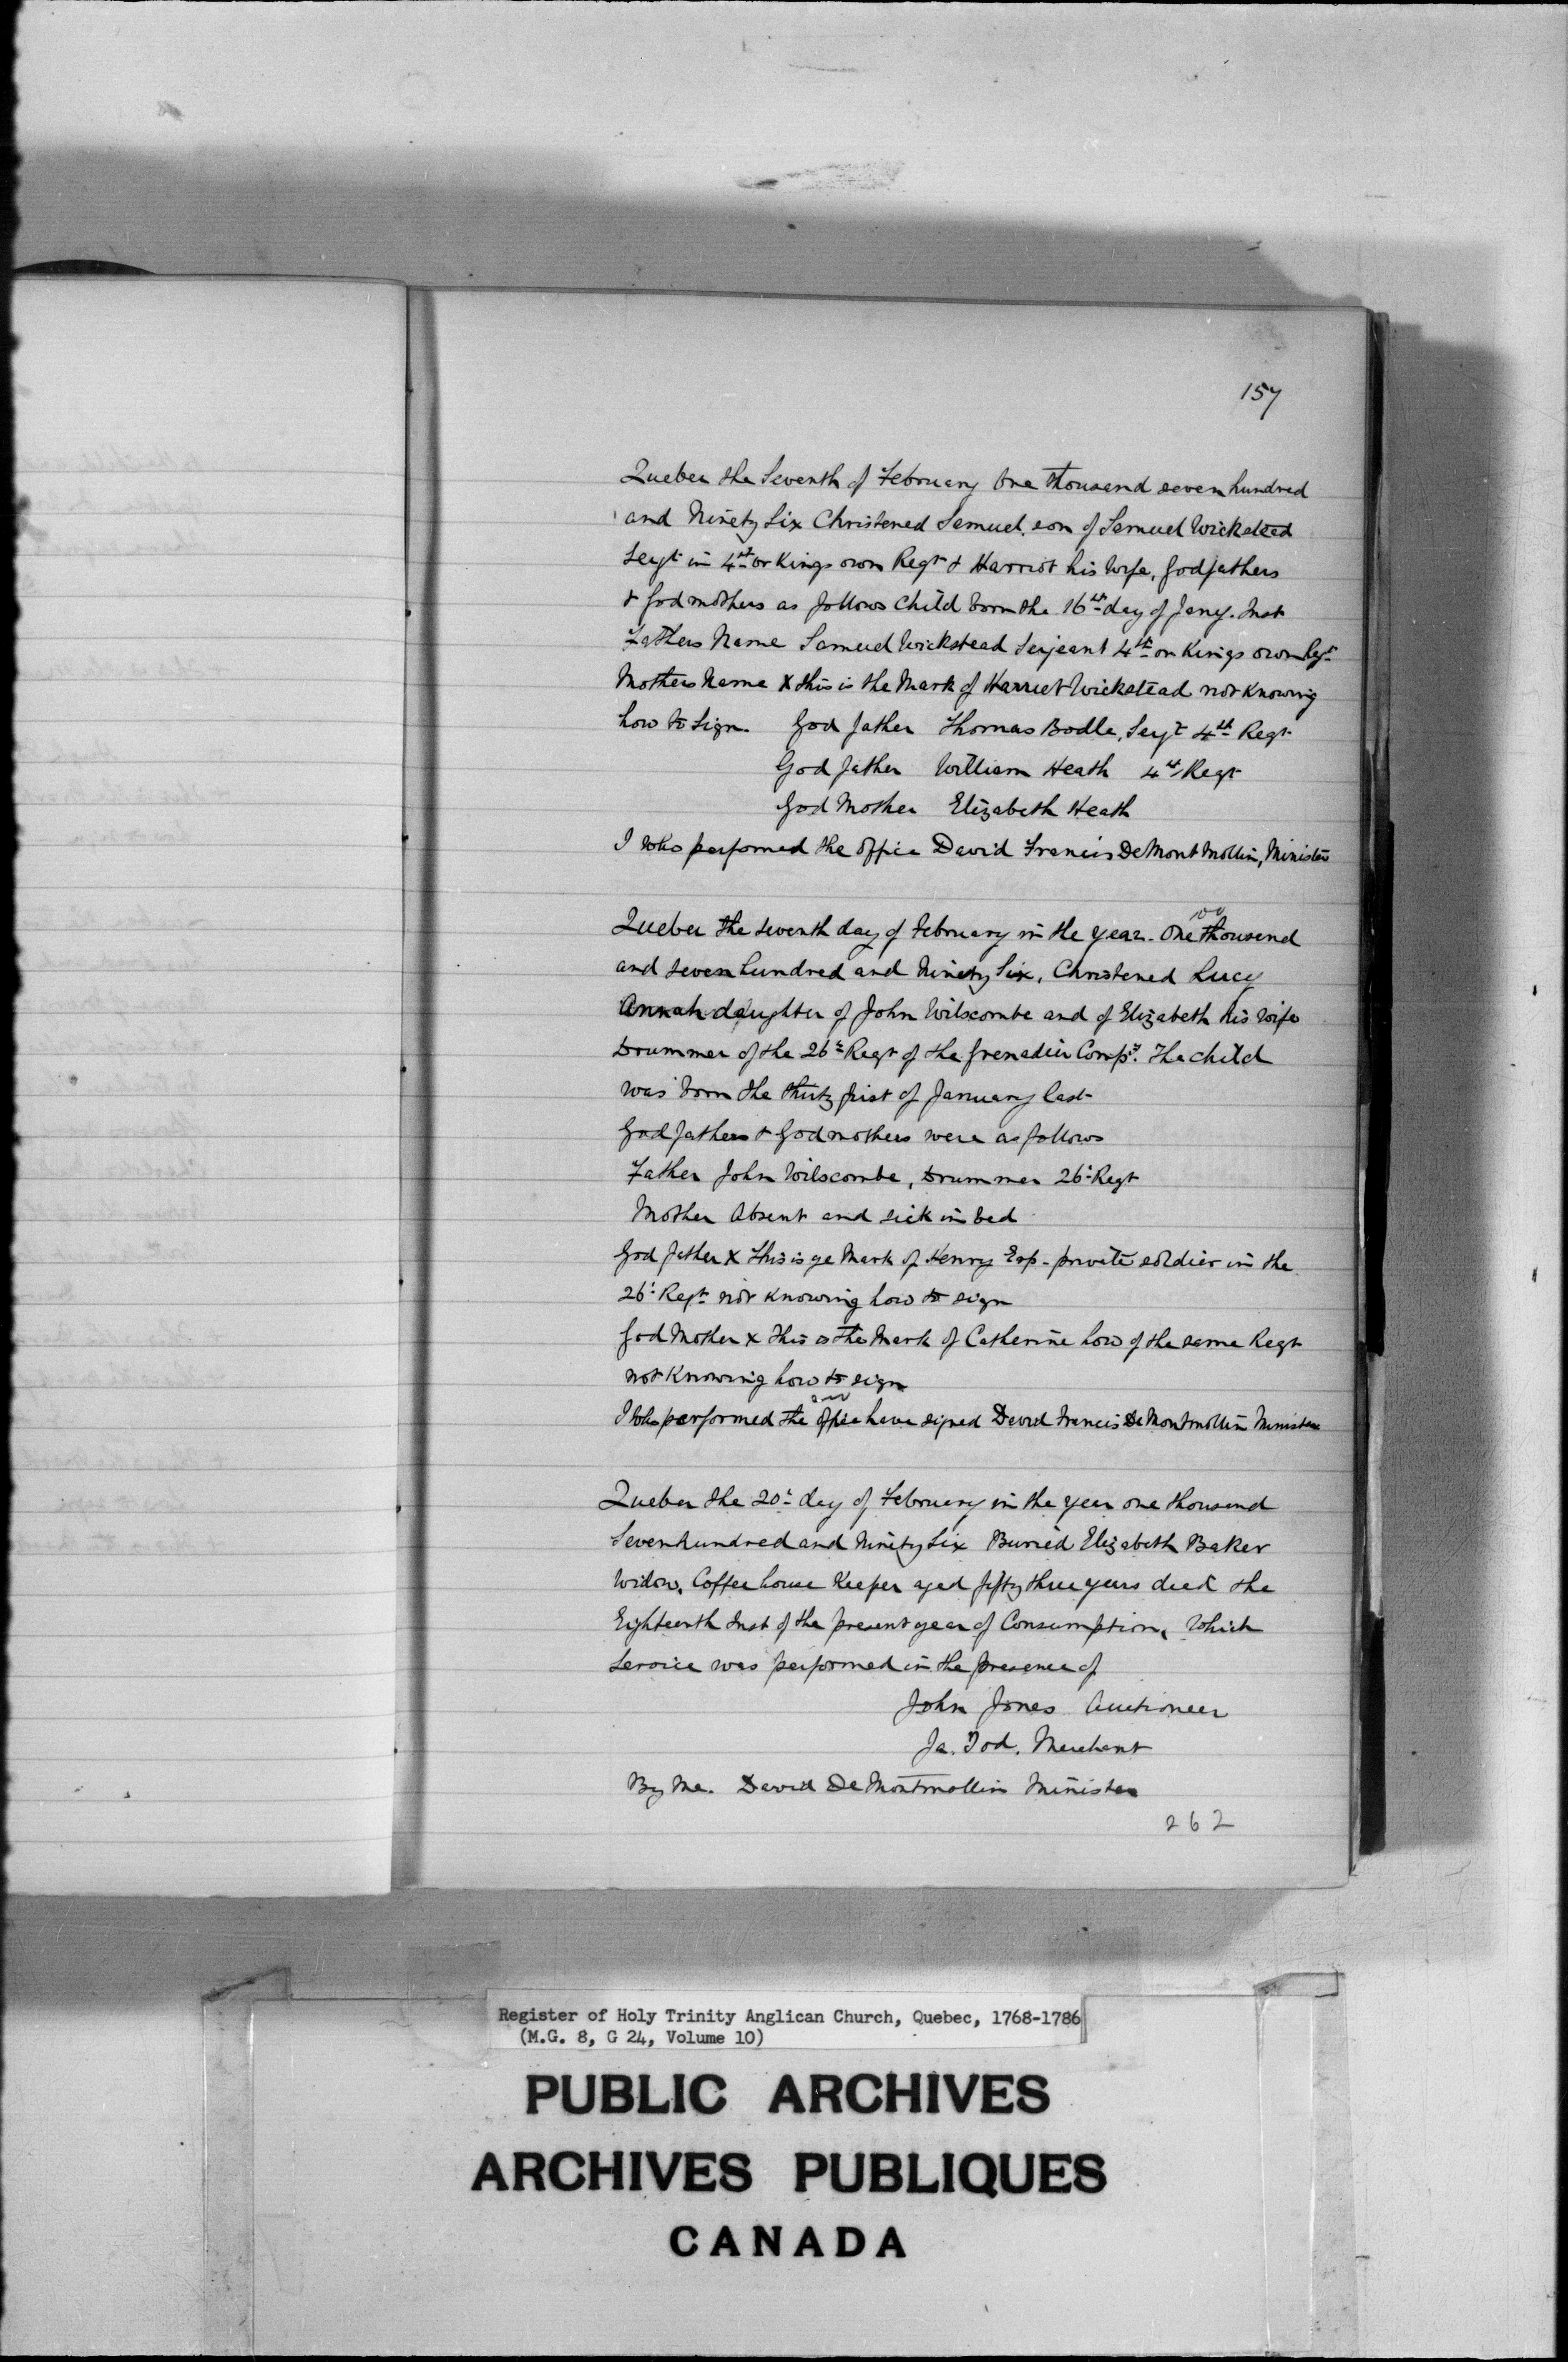 157
Quebec the Seventh of February One thousand seven hundred
and Ninety Six Christened Samuel son of Samuel Wickstead
Serjt in 4th or Kings own Regt & Harriot his Wife, Godfathers
& Godmothers as follows Child born the 16th day of Jany. Inst
Fathers Name Samuel Wickstead Serjeant 4th or Kings own Regt
Mothers Name X this is the Mark of Harriet Wickstead not Knowing
how to Sign. God father Thomas Bodle, Serjt 4th Regt
God father William Heath 4th Regt
God Mother Elizabeth Heath
I who performed the office David Francis DeMontMollin, Minister
Quebec the seventh day of February in the year. One thousand
and seven hundred and Ninety Six, Christened Lucy
Annah daughter of John Wilscombe and of Elizabeth his Wife
Drummer of the 26th Regt of the Grenadier Compy. The child
was born the thirty first of January last
Godfathers & Godmothers were as follows
Father John Wilscombe, Drummer 26th Regt
Mother Absent and sick in bed
God father X this is ye Mark of Henry private soldier in the
26th Regt not Knowing how to sign
God Mother X this is the Mark of Catherine how of the same Regt
not Knowing how to sign
I who performed the office have signed David Francis DeMontmollin Minister
Quebec the 20th day of February in the year one thousand
Seven hundred and Ninety Six Buried Elizabeth Baker
Widow, Coffee house Keeper aged fifty three years died the
Eighteenth Inst of the present year of Consumption, Which
Service was performed in the presence of
John Jones Auctioneer
Ja. Tod. Merchant
By Me. David DeMontmollin Minister
262
Register of Holy Trinity Anglican Church, Quebec, 1768-1786
(M.G. 8, G 24, Volume 10)
PUBLIC ARCHIVES
ARCHIVES PUBLIQUES
CANADA